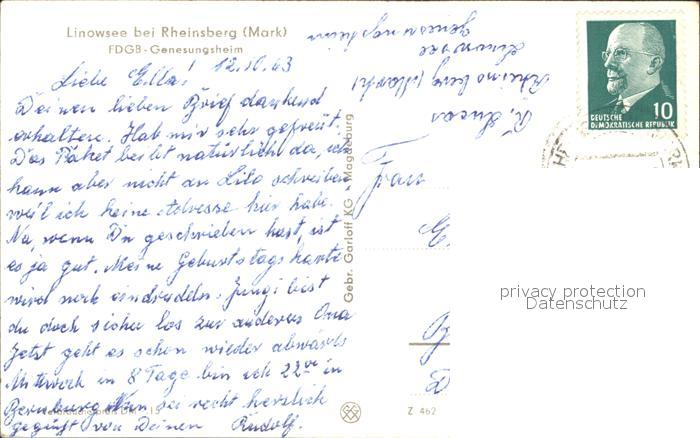 Linowsee bei Rheinsberg (Mark)
FDGB-Genesungsheim
Liebe Ella! 12.10.63
Deinen lieben Brief dankend
erhalten. Hab mir sehr gefreut.
Das Paket bleibt natürlich da, ich
kann aber nicht an Lilo schreiben
weil ich keine Adresse hier habe.
Na, wenn Du geschrieben hast, ist
es ja gut. Meine Geburtstagskarte
wird noch eintrudeln. Jungi bist
du doch sicher los zur anderen Oma
Jetzt geht es schon wieder abwärts
Mittwoch in 8 Tage bin ich 22°° in
Bernburg. Nun sei recht herzlich
gegrüßt von Deinen Rudolf.
Gebr. Garloff KG Magdeburg
R. Lucas
Rheinsberg (Mark)
Linowsee
Genesungsheim
Frau
E
D
Z 462
10
DEUTSCHE
DEMOKRATISCHE REPUBLIK
privacy protection
Datenschutz